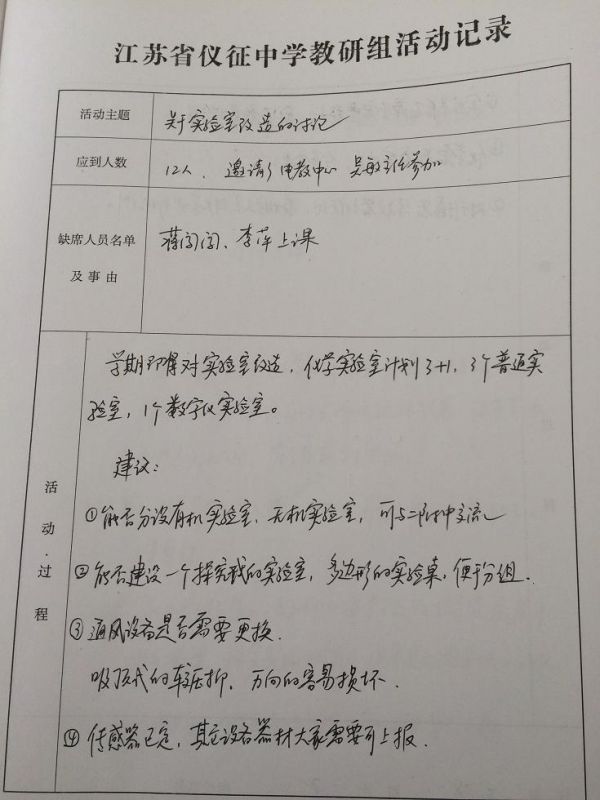 江苏省仪征中学教研组活动记录
活动主题
关于实验室改造的讨论
应到人数
12人，邀请了电教中心 吴敏主任参加
缺席人员名单
及事由
蒋闯闯、李萍上课
活动·过程
学期即将对实验室改造，化学实验室计划3+1，3个普通实
验室，1个数字化实验室。
建议：
①能否分设有机实验室，无机实验室，可与二附中交流
②能否建设一个探究式的实验室，多边形的实验桌，便于分组．
③通风设备是否需要更换．
吸顶式的较压抑，万向的容易损坏．
④传感器已定，其它设备器材大家需要可上报．